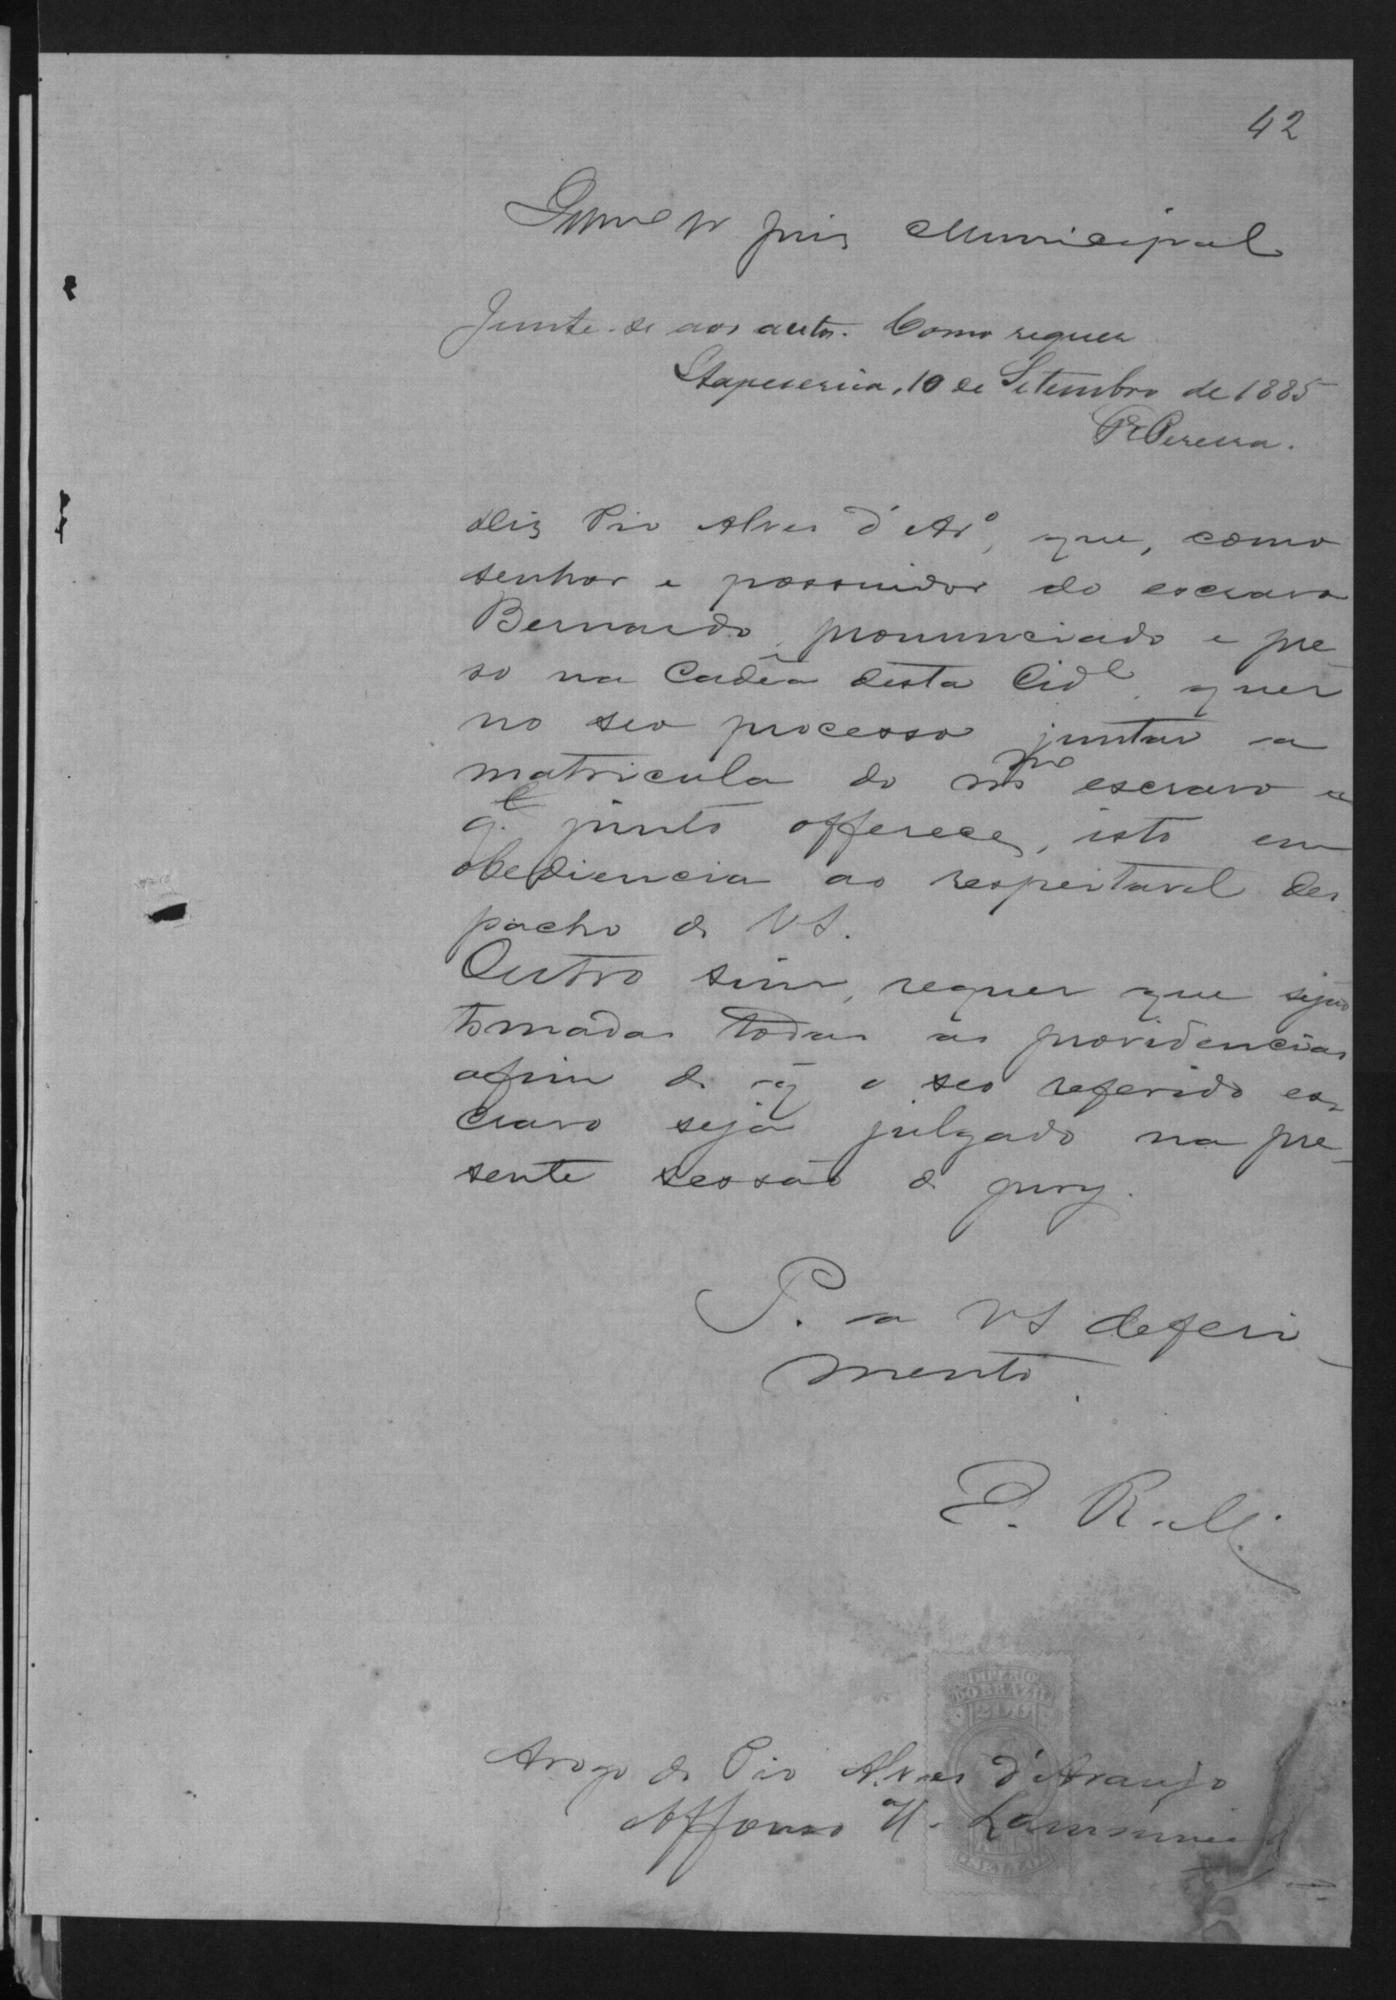 42
Illmº Sr Juis Municipal
Junte-se aos autos. Como requer
Itapecerica, 10 de Setembro de 1885
Pereira.
Diz Pio Alves d'Arº, que, como
senhor e possuidor do escravo
Bernardo, pronunciado e pre-
so na Cadêa desta Cidᵉ, quer
no seo processo juntar a
matricula do mᵐᵒ escravo a
q.ˡ junto offerece, isto em
obediencia ao respeitavel des
pacho de VS.
Outro sim, requer que sejão
tomadas todas as providencias
afim de q̃ o seo referido es-
cravo seja julgado na pre-
sente sessão de jury.
P. a VS deferi-
mento.
E. R. M.
IMPERIO
DO BRAZIL
200
Arogo de Pio Alves d'Araujo
Affonso